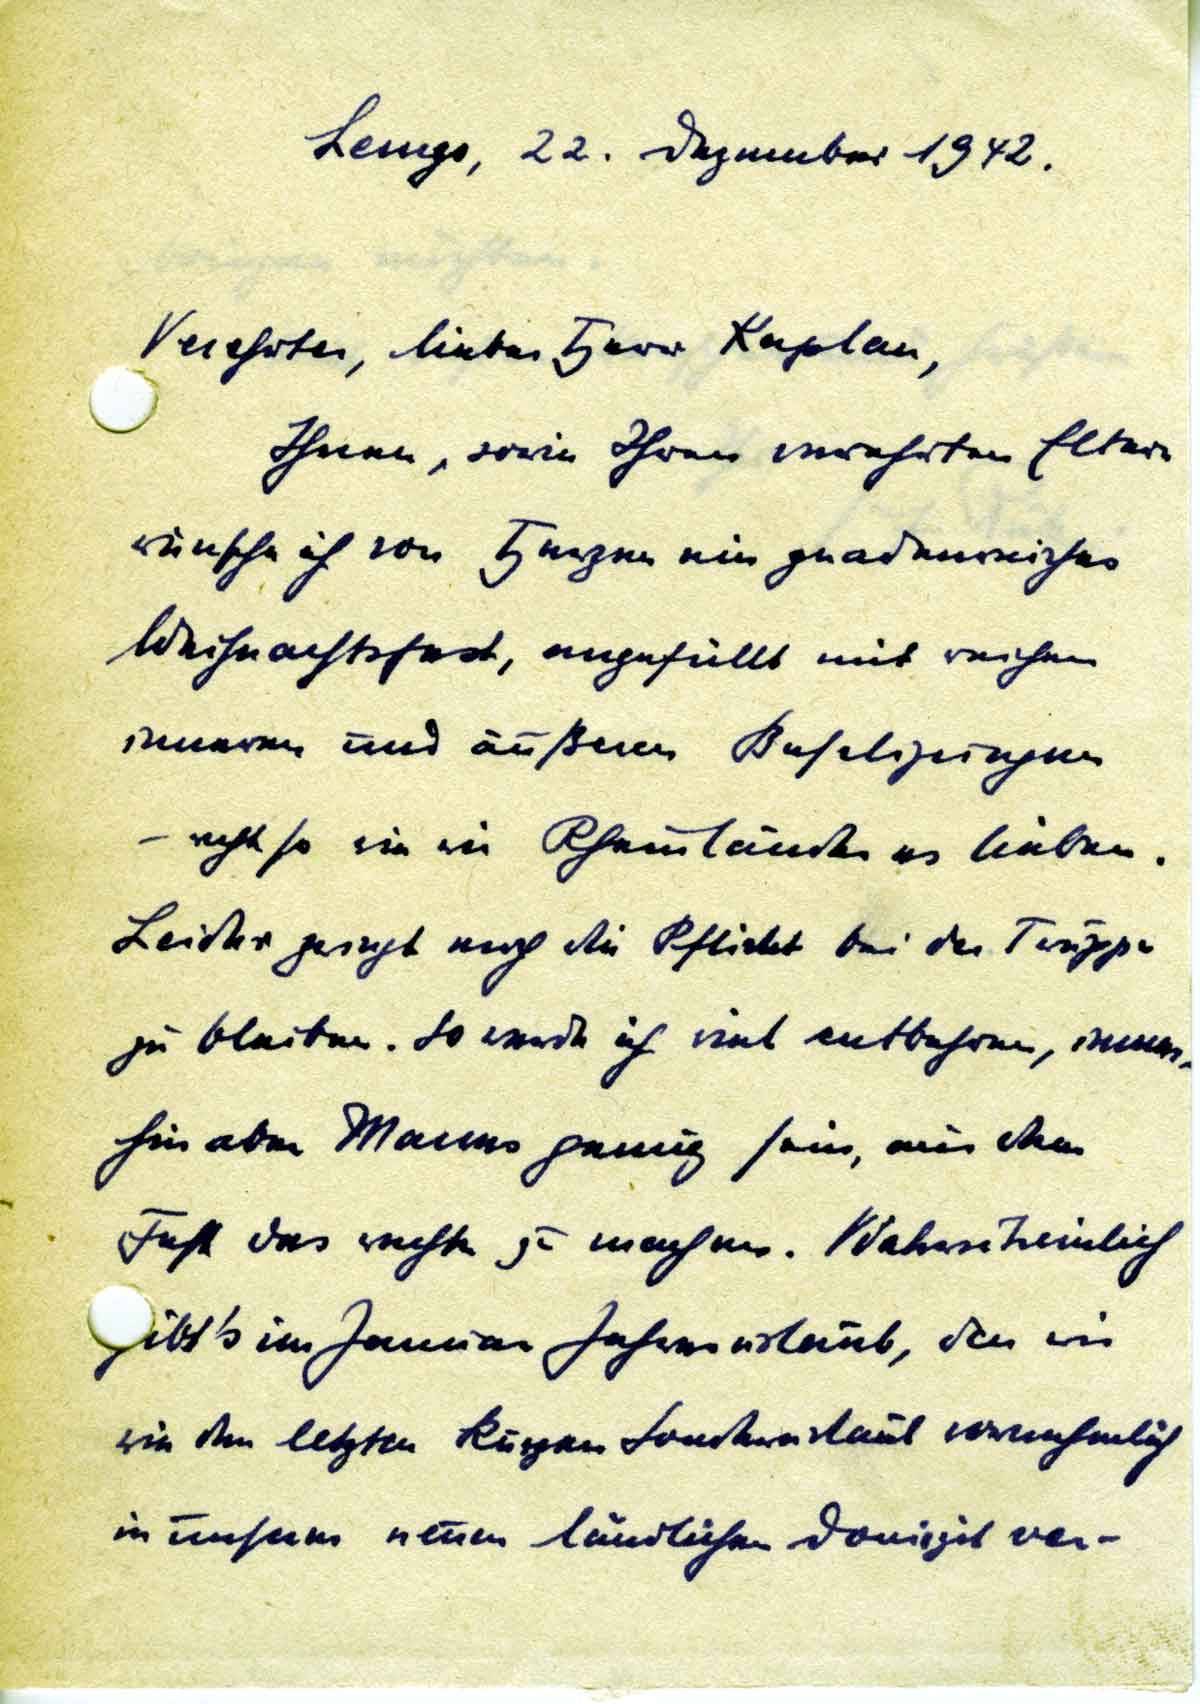 Lemgo, 22. Dezember 1942.
Verehrter, lieber Herr Kaplan,
Ihnen, sowie Ihren verehrten Eltern
wünsche ich von Herzen ein gnadenreiches
Weihnachtsfest, angefüllt mit reichen
inneren und äußeren Beseligungen
– recht so wie wir Rheinländer es lieben.
Leider zwingt mich die Pflicht bei der Truppe
zu bleiben. So werde ich viel entbehren, immer-
hin aber Mannes genug sein, aus dem
Fest das rechte zu machen. Wahrscheinlich
gibt's im Januar Jahresurlaub, den wir
wie den letzten kurzen Sonderurlaub vornehmlich
in unserm neuen ländlichen Domizil ver-